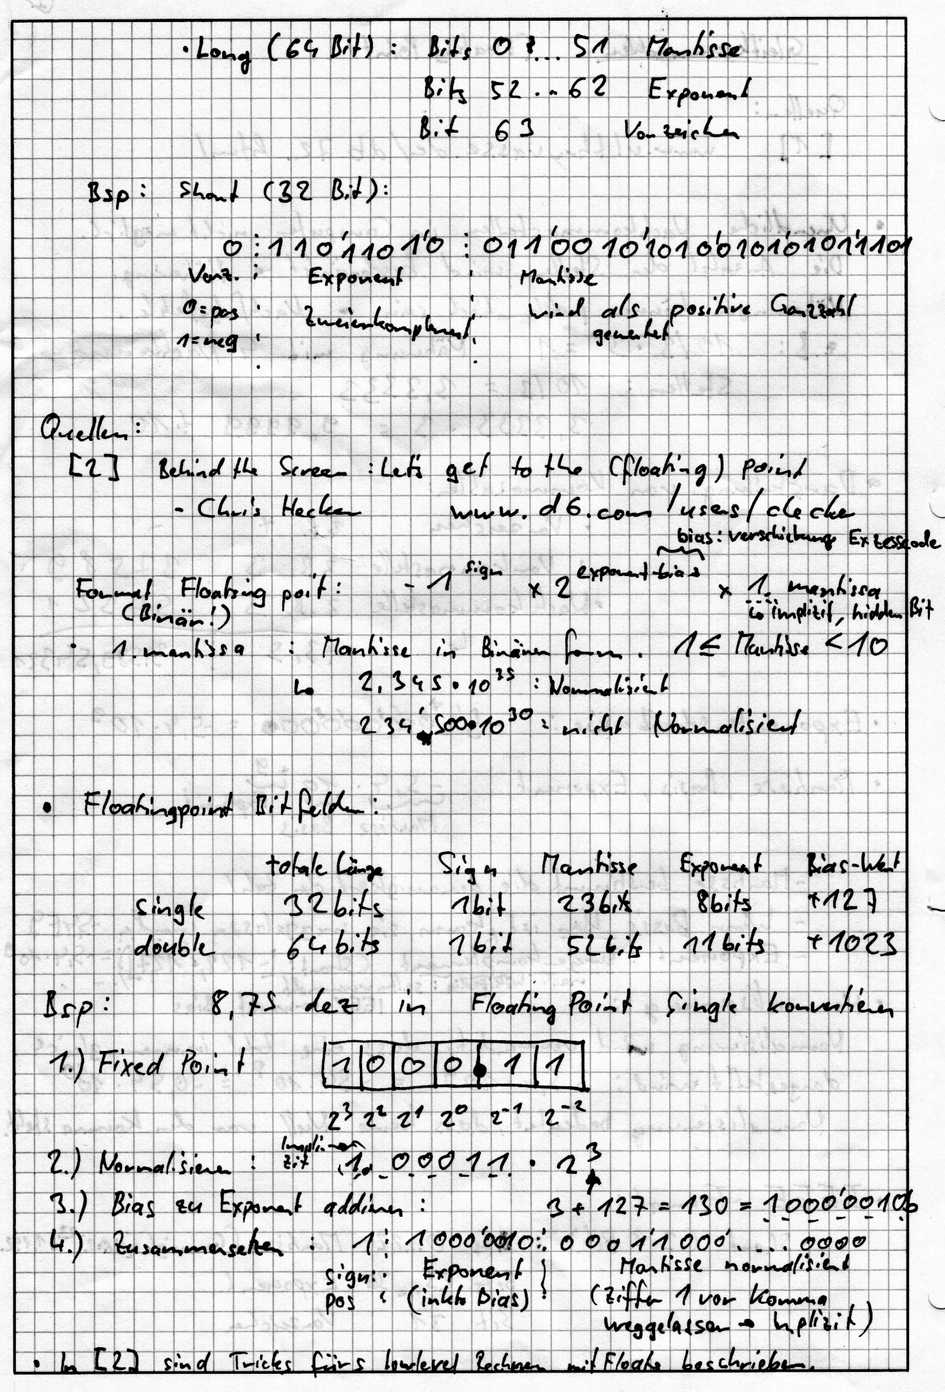 · Long (64 Bit) : Bits 0 ... 51 Mantisse
Bits 52 .. 62 Exponent
Bit 63 Vorzeichen
Bsp : Short (32 Bit):
0 : 110'110 1'0 : 011'00 10'10100101010101'1101
Vorz. : Exponent : Mantisse
0=pos : Zweierkomplement : wird als positive Ganzzahl
1=neg : gewertet
Quellen:
[2] Behind the Screen : Let's get to the (floating) point
- Chris Hecker www.d6.com/users/checke
bias: verschiebung Exzesscode
Format Floating poit: -1^sign × 2^exponent-bias × 1. mantissa
(Binär!) ↳ implizit, hidden Bit
· 1.mantissa : Mantisse in Binären form. 1 ≤ Mantisse < 10
↳ 2,345 · 10^35 : Normalisiert
234'500·10^30 : nicht Normalisiert
· Floatingpoint Bitfelder:
totale Länge Sign Mantisse Exponent Bias-Wert
single 32bits 1bit 23bits 8bits +127
double 64bits 1bit 52bits 11bits +1023
Bsp: 8,75 dez in Floating Point Single konvertieren
1.) Fixed Point 1 0 0 0 . 1 1
2^3 2^2 2^1 2^0 2^-1 2^-2
2.) Normalisieren : Implizit → 1. 00011 · 2^3
3.) Bias zu Exponent addieren : 3 + 127 = 130 = 1000'0010b
4.) Zusammensetzen : 1 : 1000'0010 : 00011000'.... 0000
sign: Exponent Mantisse normalisiert
pos (inkto Bias) (Ziffer 1 vor Komma
weggelassen → Inplizit)
· In [2] sind Tricks fürs lowlevel Rechnen mit Floats beschrieben.